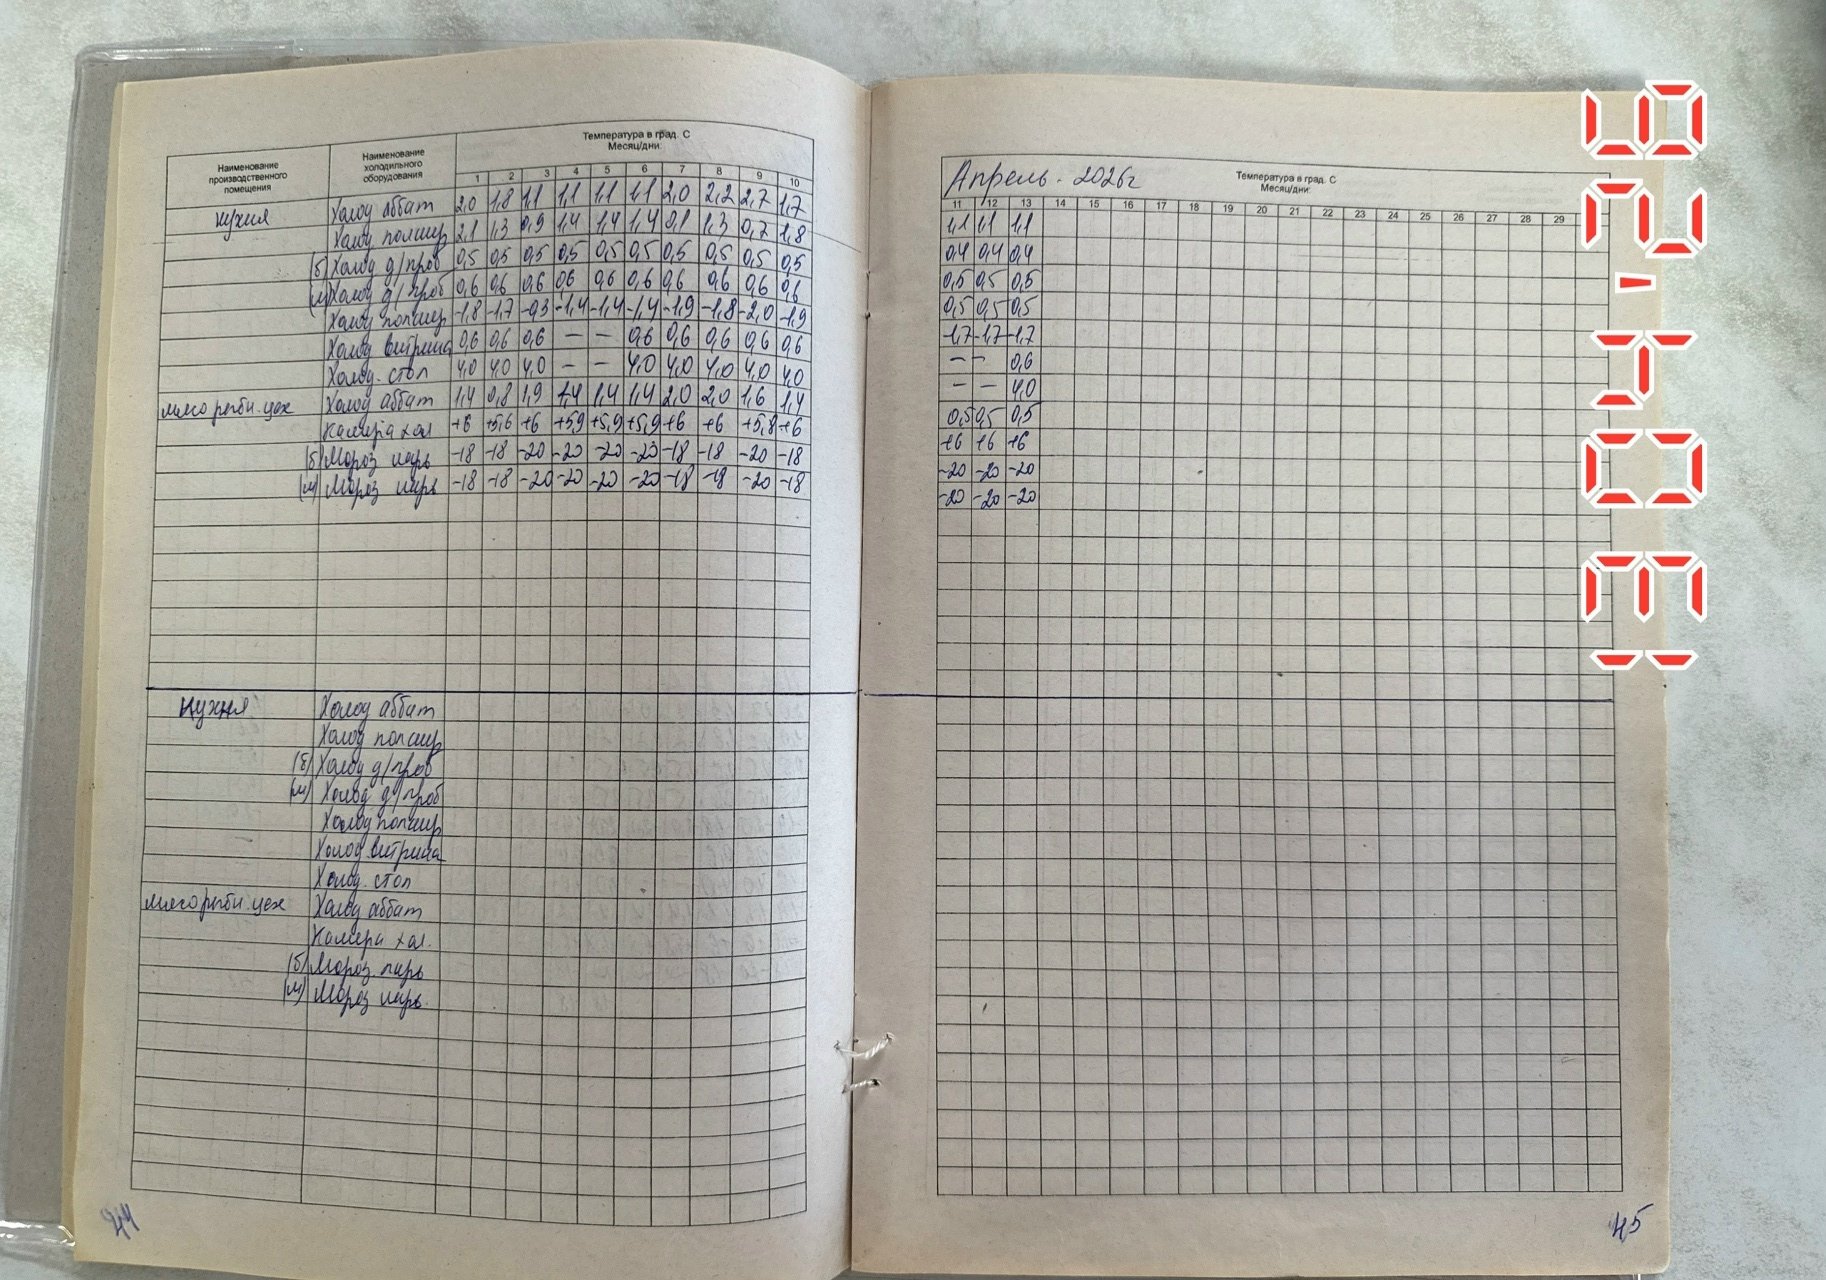 Наименование производственного помещения
Наименование холодильного оборудования
Температура в град. С
Месяц/дни:
1 2 3 4 5 6 7 8 9 10
кухня Холод аббат 2,0 1,8 1,1 1,1 1,1 1,1 2,0 2,2 2,7 1,7
Холод полаир 2,1 1,3 0,9 1,4 1,4 1,4 0,1 1,3 0,7 1,8
(б) Холод д/проб 0,5 0,5 0,5 0,5 0,5 0,5 0,5 0,5 0,5 0,5
(м) Холод д/проб 0,6 0,6 0,6 0,6 0,6 0,6 0,6 0,6 0,6 0,6
Холод полаир -1,8 -1,7 -0,3 -1,4 -1,4 -1,4 -1,9 -1,8 -2,0 -1,9
Холод витрина 0,6 0,6 0,6 – – 0,6 0,6 0,6 0,6 0,6
Холод. стол 4,0 4,0 4,0 – – 4,0 4,0 4,0 4,0 4,0
мясо рыбн. цех Холод аббат 1,4 0,8 1,9 1,4 1,4 1,4 2,0 2,0 1,6 1,4
Камера хол +6 +5,6 +6 +5,9 +5,9 +5,9 +6 +6 +5,8 +6
(б) Мороз ларь -18 -18 -20 -20 -20 -20 -18 -18 -20 -18
(м) Мороз ларь -18 -18 -20 -20 -20 -20 -18 -18 -20 -18
кухня Холод аббат
Холод полаир
(б) Холод д/проб
(м) Холод д/проб
Холод полаир
Холод витрина
Холод. стол
мясо рыбн. цех Холод аббат
Камера хол.
(б) Мороз. ларь
(м) Мороз ларь.
44
Апрель - 2026г
Температура в град. С
Месяц/дни:
11 12 13 14 15 16 17 18 19 20 21 22 23 24 25 26 27 28 29
1,1 1,1 1,1
0,4 0,4 0,4
0,5 0,5 0,5
0,5 0,5 0,5
-1,7 -1,7 -1,7
– – 0,6
– – 4,0
0,5 0,5 0,5
+6 +6 +6
-20 -20 -20
-20 -20 -20
45